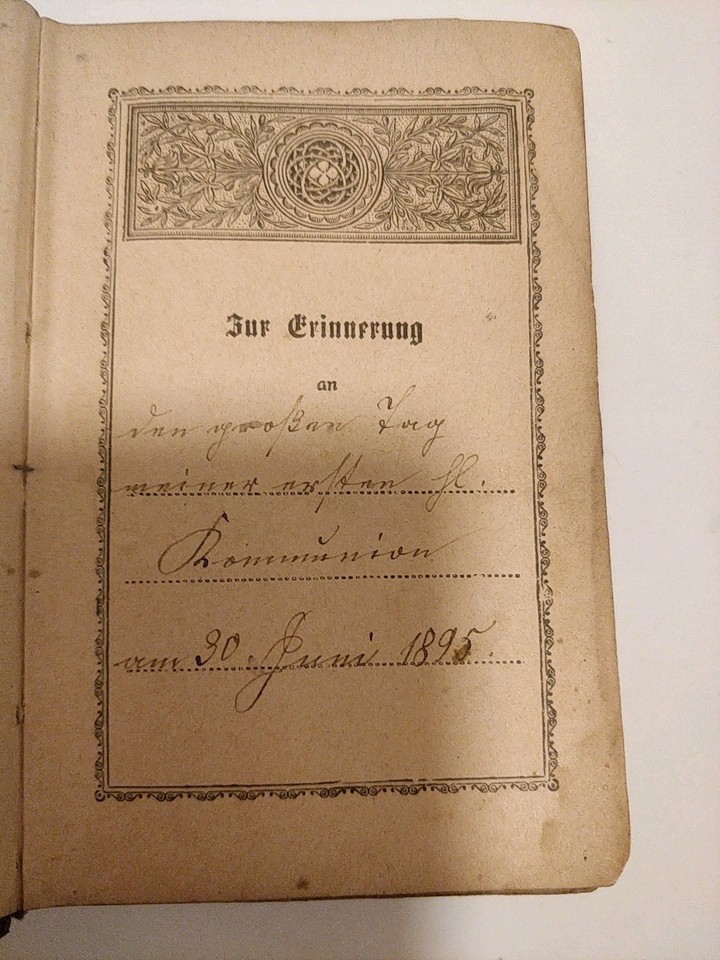 Zur Erinnerung
an
den großen Tag
meiner ersten hl.
Kommunion
am 30. Juni 1895.